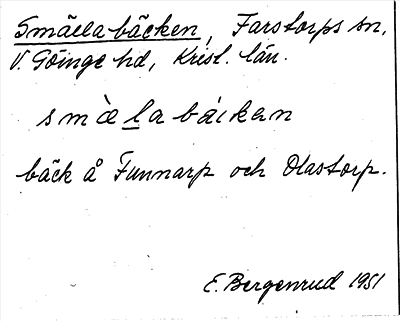 Smällabäcken, Farstorps sn,
V. Göinge hd, Krist. län.
smὰlabákɘn
bäck å Funnarp och Olastorp.
E. Bergenrud 1951